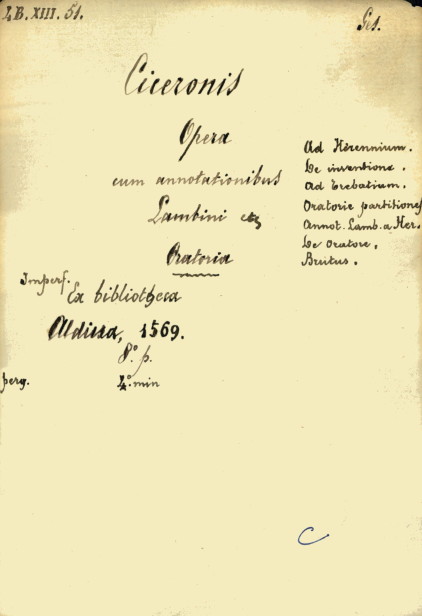 LB. XIII. 51.
Ciceronis
Opera
cum annotationibus
Lambini etc
Oratoria
Ad Herennium.
De inventione.
ad Trebatium.
Oratorie partitiones
Annot. Lamb. a Her.
De Oratore.
Brutus.
Imperf.
Ex bibliotheca
Aldina, 1569.
8.º p.
perg.
4.º min
C